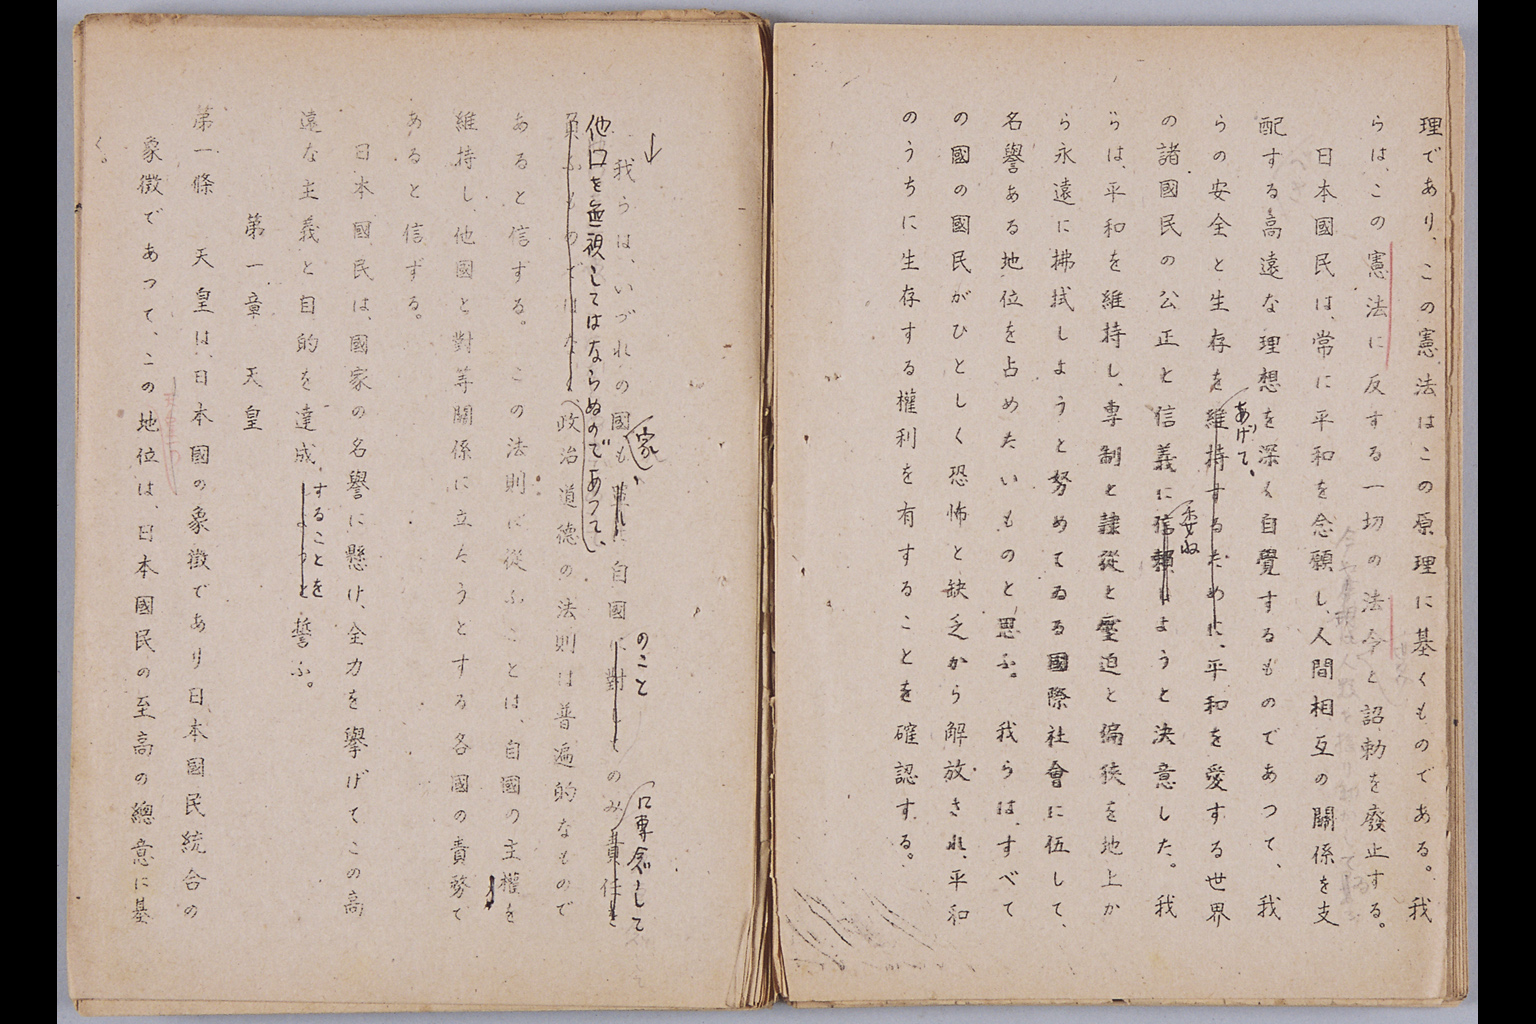 理であり、この憲法はこの原理に基くものである。我
らは、この憲法に反する一切の法令と詔勅を廢止する。
日本國民は、常に平和を念願し、人間相互の關係を支
配する高遠な理想を深く自覺するものであつて、我
らの安全と生存を維持するために、平和を愛する世界
あげて、
の諸國民の公正と信義に信賴しようと決意した。我
委ね
らは、平和を維持し、專制と隷從と壓迫と偏狹を地上か
ら永遠に拂拭しようと努めてゐる國際社會に伍して、
名譽ある地位を占めたいものと思ふ。我らは、すべて
の國の國民がひとしく恐怖と缺乏から解放され、平和
のうちに生存する權利を有することを確認する。
我らは、いづれの國も單に自國に對してのみ責任を
家
のこと
に專念して
他国を無視してはならぬのであつて、
負ふものではなく政治道德の法則は普遍的なもので
あると信ずる。この法則に從ふことは、自國の主權を
維持し、他國と對等關係に立たうとする各國の責務で
あると信ずる。
日本國民は、國家の名譽に懸け、全力を擧げてこの高
遠な主義と目的を達成しようと誓ふ。
することを
第一章 天皇
第一條 天皇は、日本國の象徴であり日本國民統合の
象徴であつて、この地位は、日本國民の至高の總意に基
く。